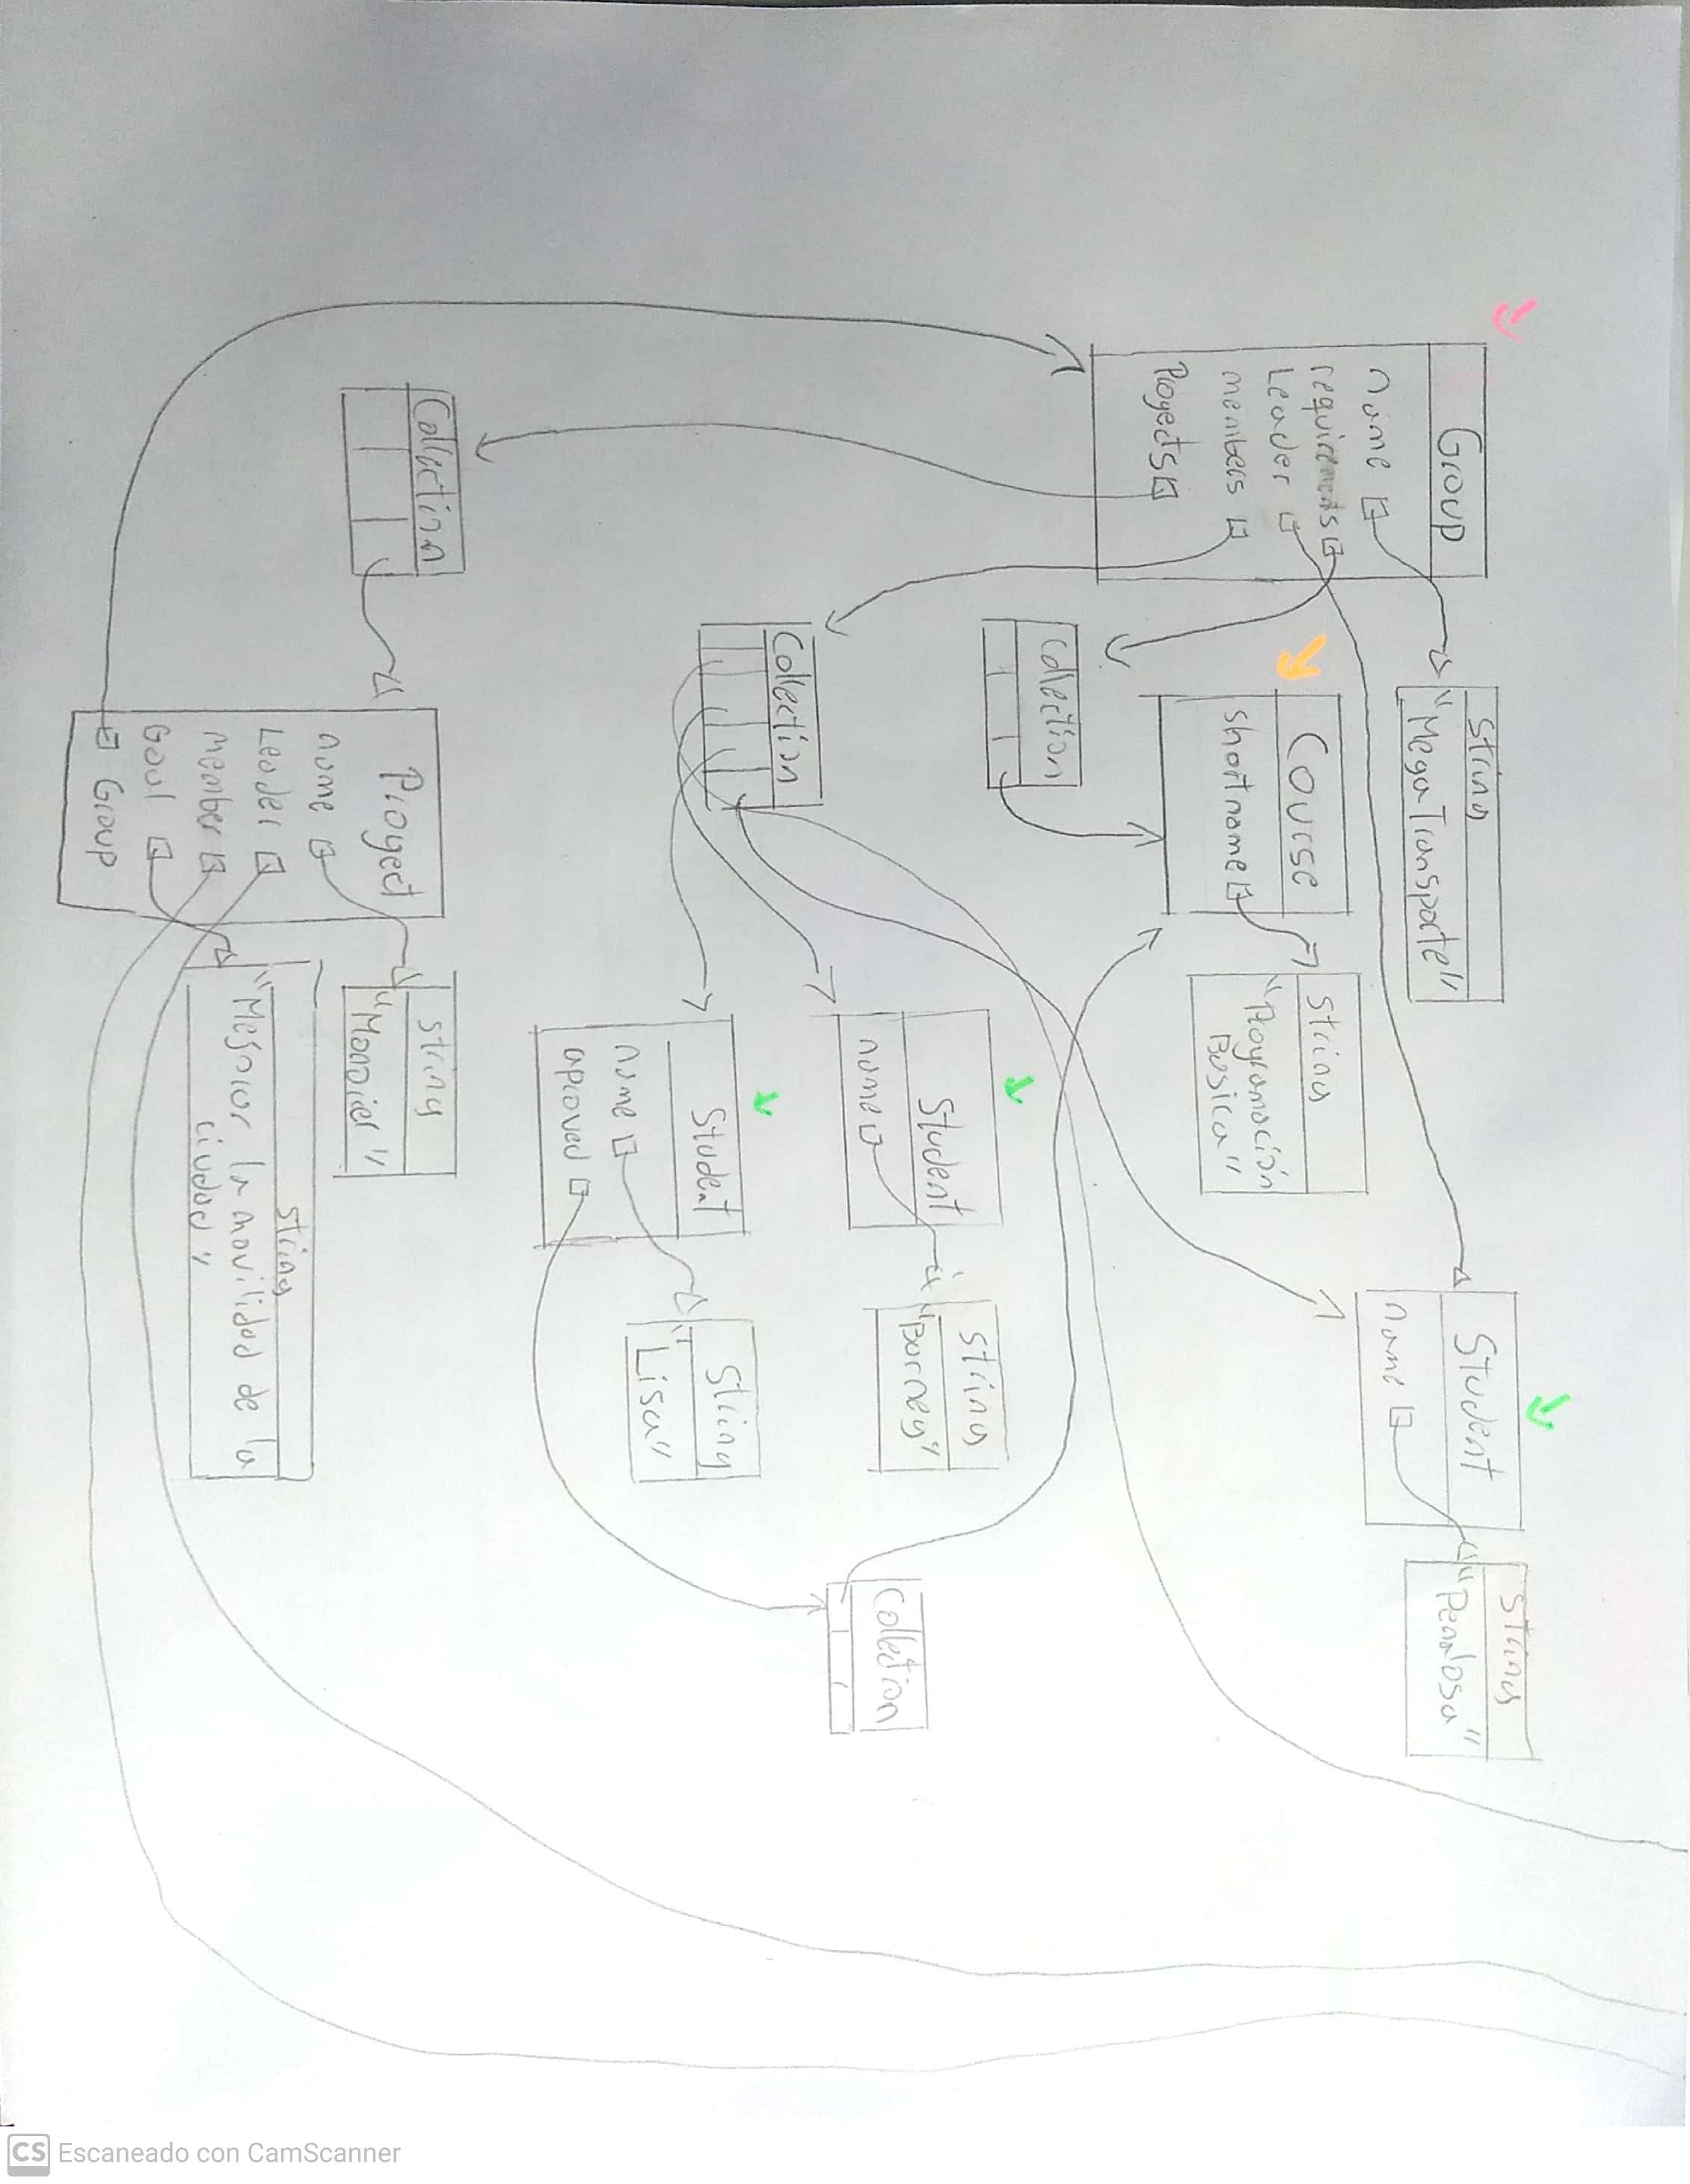 Group
name
requirements
Leader
members
Proyects
String
"MegaTransporte"
Student
name
String
"Penalosa"
Course
shortname
String
"Programación
Basica"
Collection
Student
name
String
"Barney"
Collection
Collection
Student
name
aproved
String
"Lisa"
Collection
Proyect
name
Leader
member
Goal
Group
String
"Monoriel"
String
"Mejorar la movilidad de la
ciudad"
CS Escaneado con CamScanner